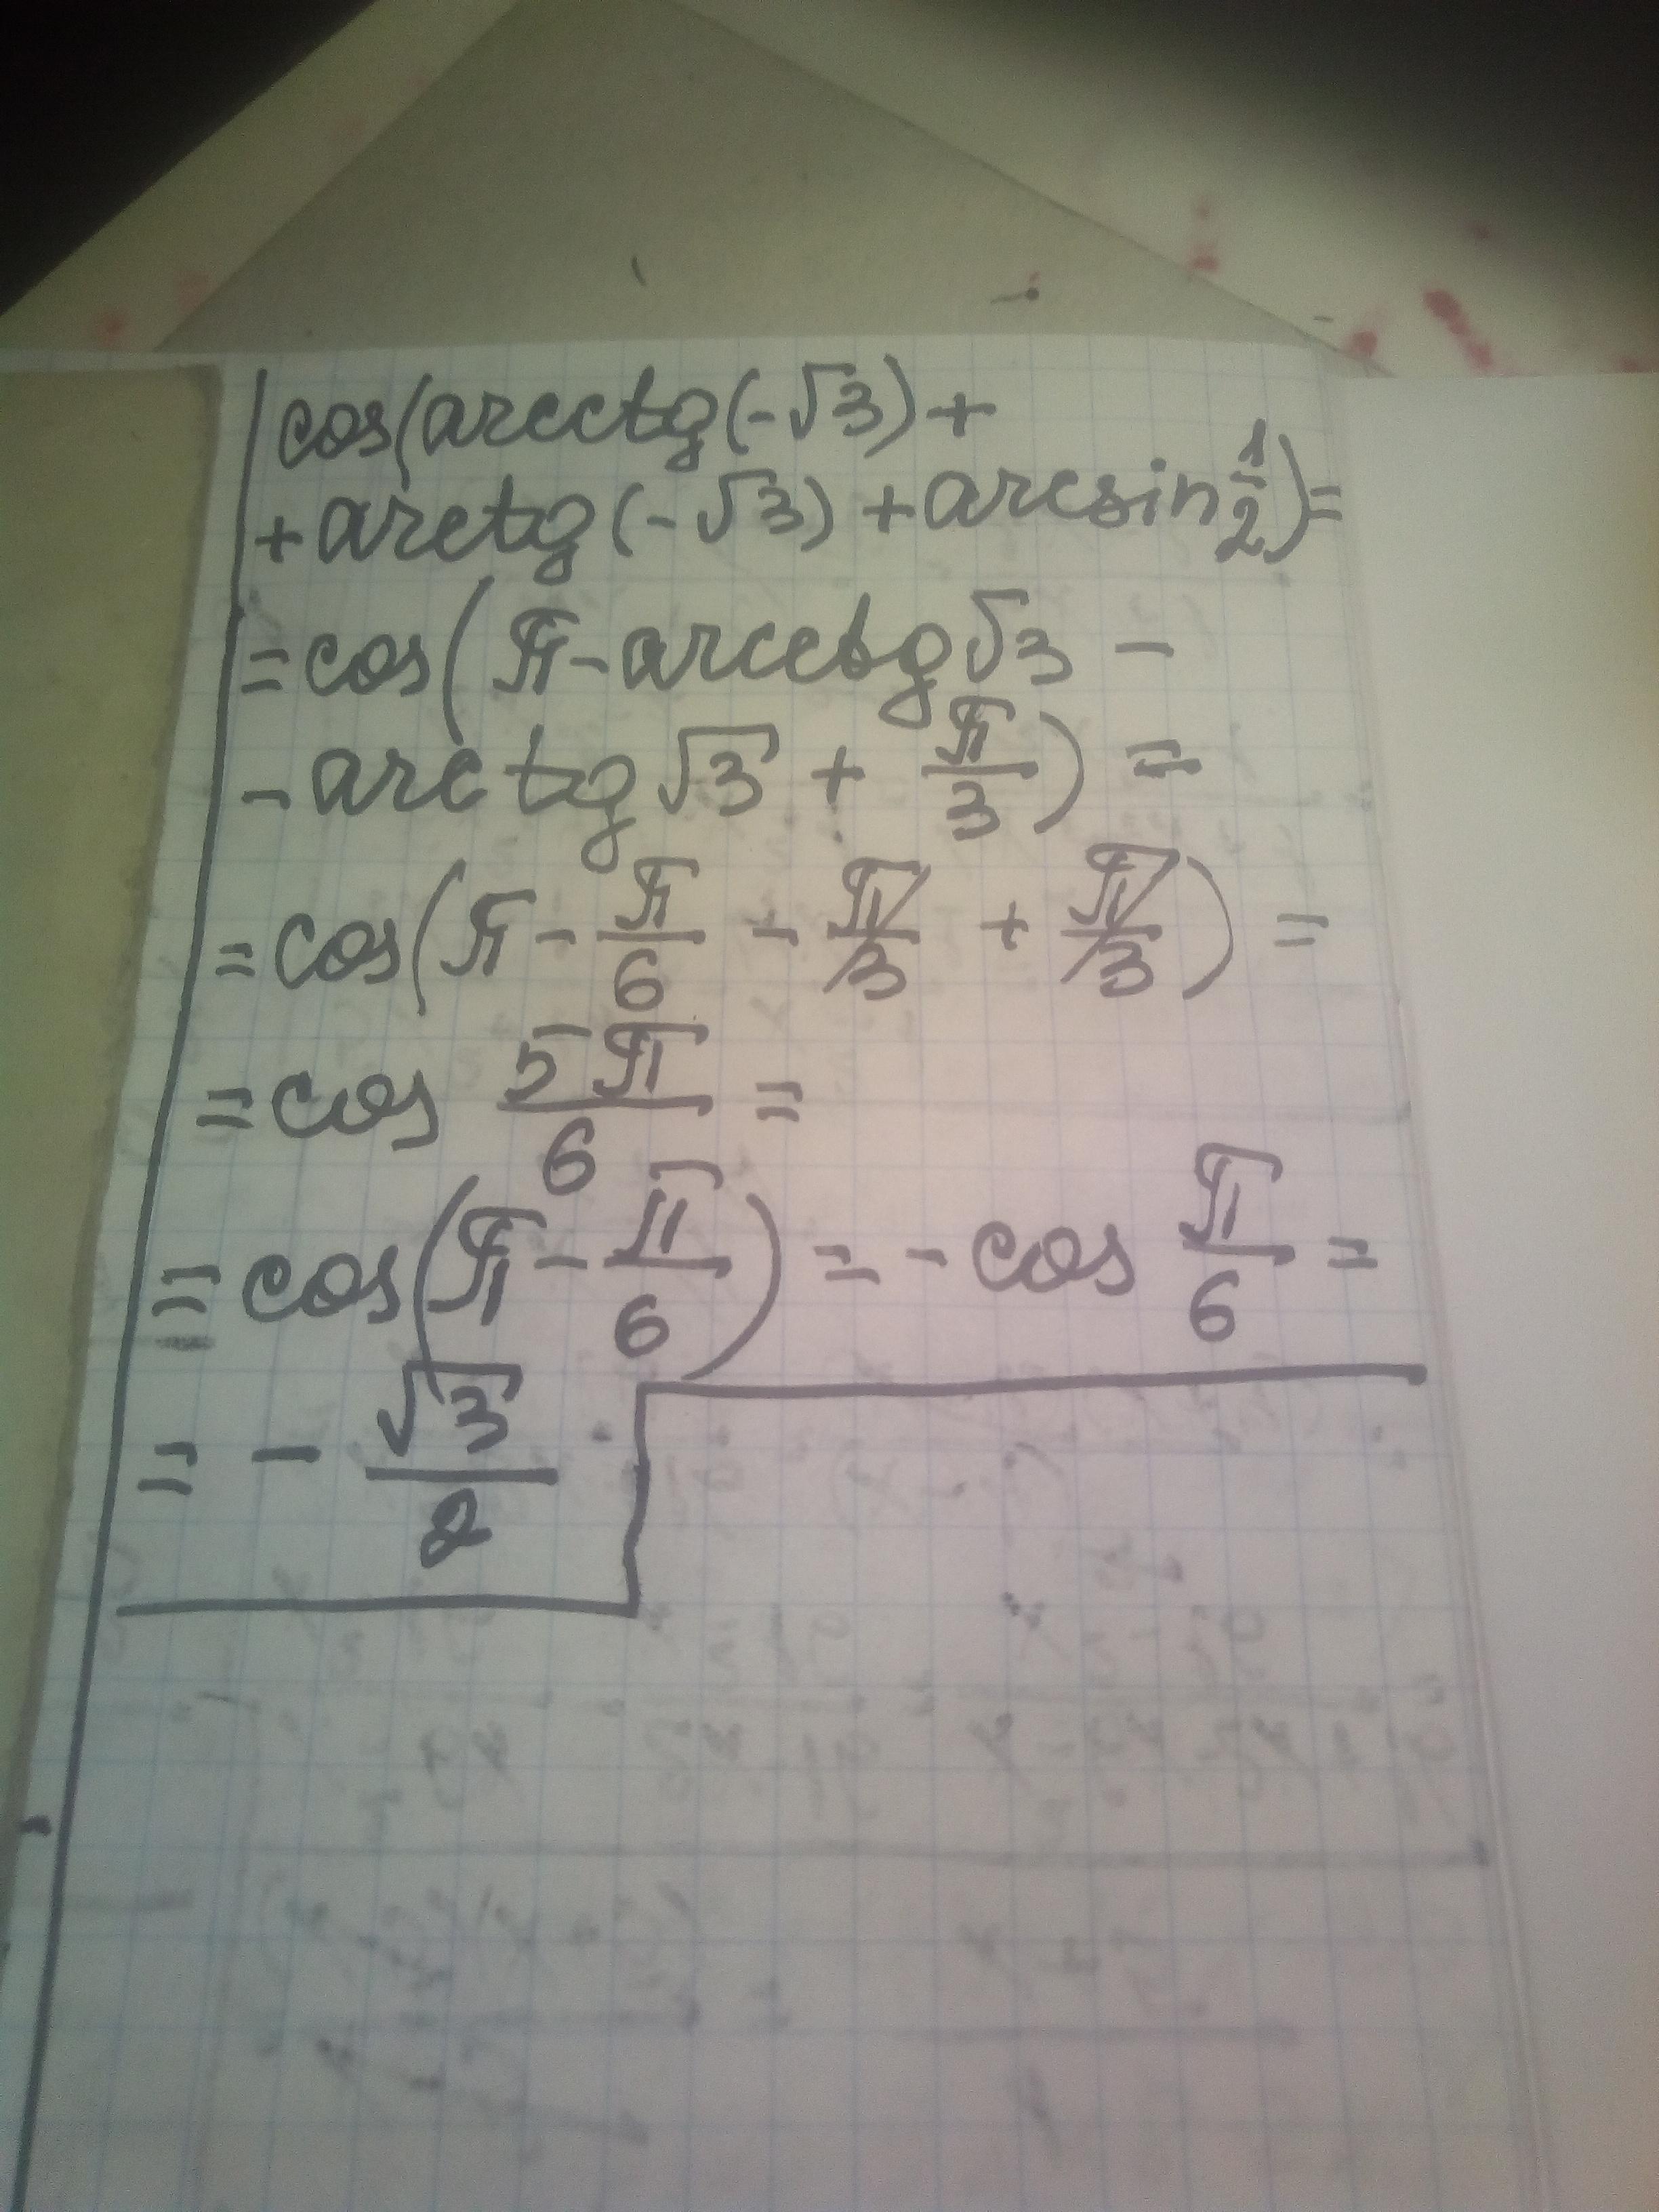 cos(arcctg(-√3)+
+arctg(-√3)+arcsin 1/2)=
=cos(π-arcctg√3 -
-arctg√3 + π/3) =
=cos(π - π/6 - π/3 + π/3) =
=cos 5π/6 =
=cos(π - π/6) = -cos π/6 =
= - √3/2